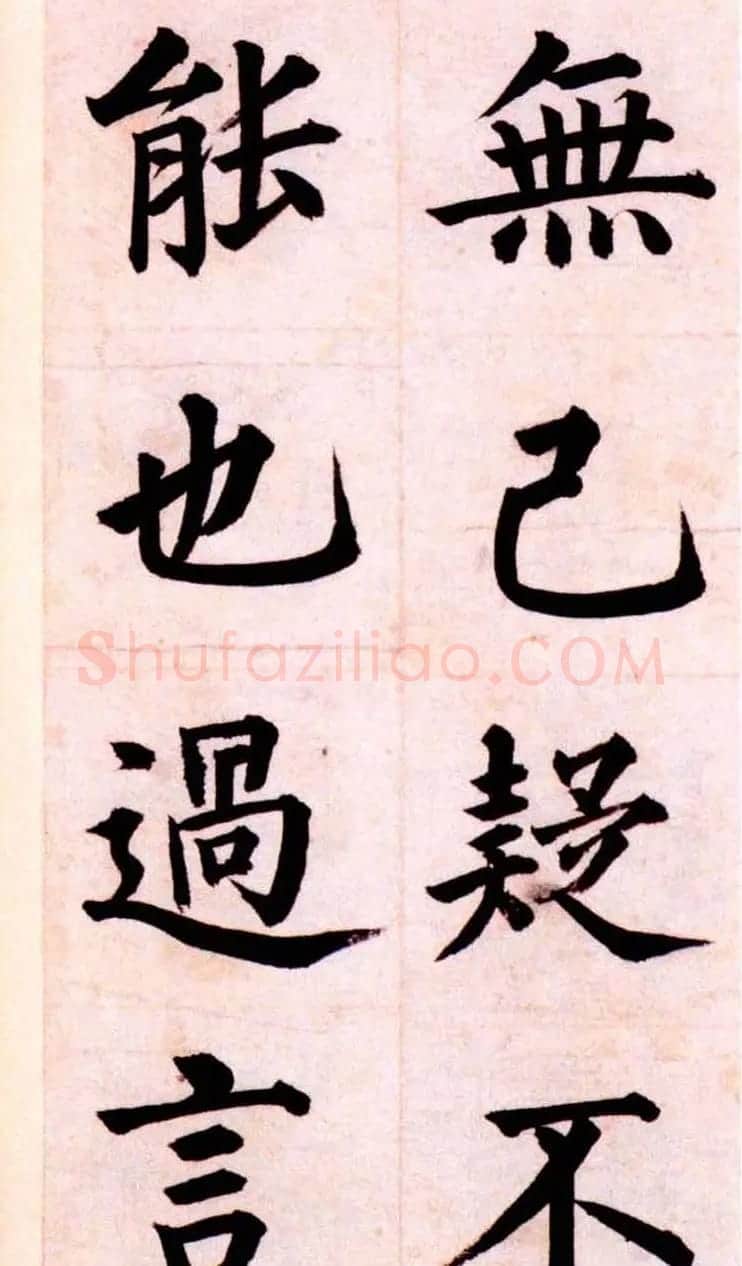 無己疑不
能也過言
Shufaziliao.COM